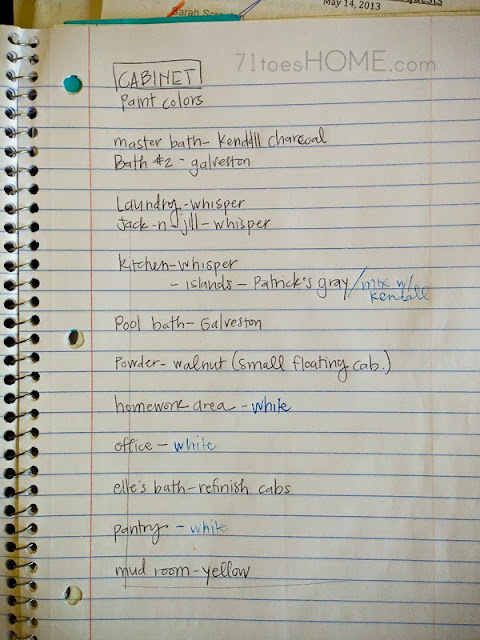 May 14, 2013
71toesHOME.com
CABINET
Paint colors
master bath- Kendall charcoal
Bath #2 - galveston
Laundry-whisper
Jack-n-jill-whisper
kitchen-whisper
- islands - Patrick's gray/mix w/
Kendall
Pool bath- Galveston
Powder- walnut (small floating cab.)
homework area - white
office - white
elle's bath-refinish cabs
pantry - white
mud room-yellow